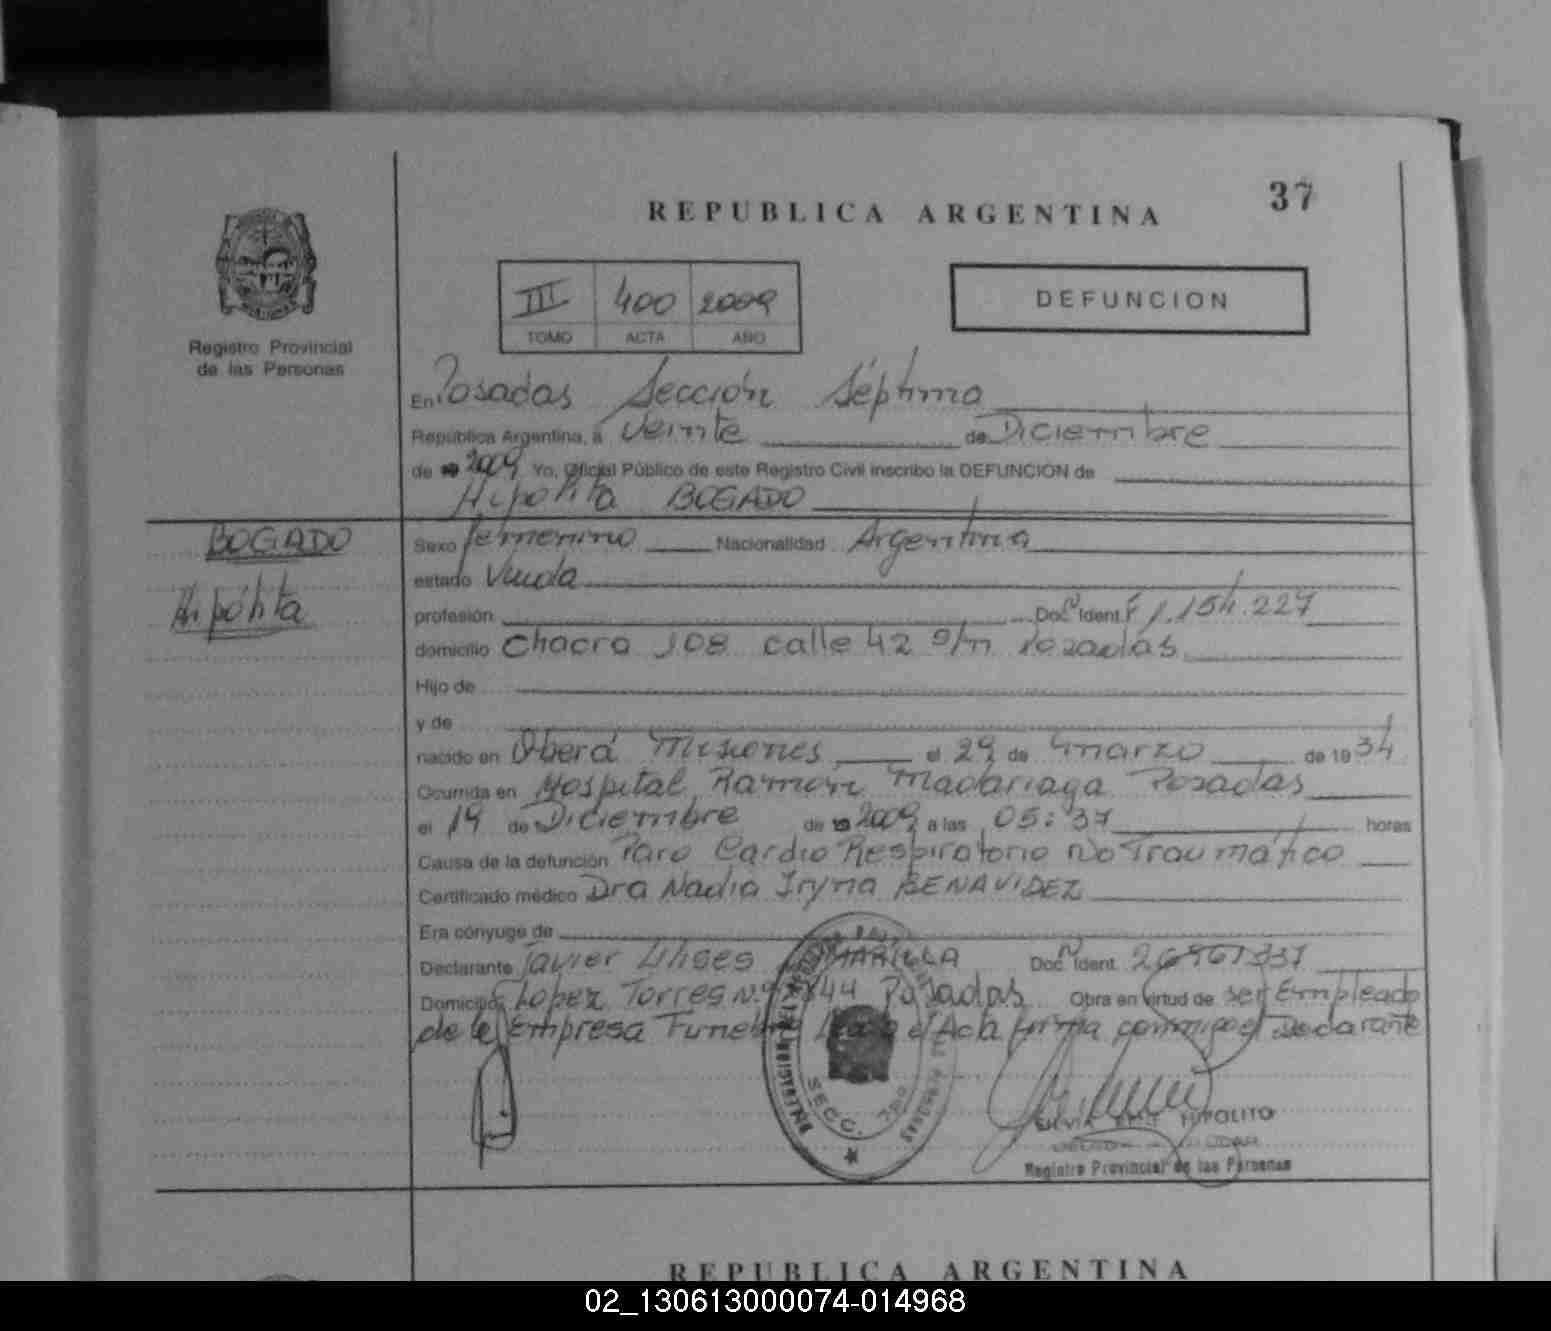 37
REPUBLICA ARGENTINA
III 400 2009
TOMO ACTA AÑO
DEFUNCION
Registro Provincial
de las Personas
En Posadas Sección Séptima
República Argentina, a Veinte de Diciembre
de 2009 Yo, Oficial Público de este Registro Civil inscribo la DEFUNCIÓN de
Hipólita BOGADO
BOGADO
Hipólita
Sexo femenino Nacionalidad Argentina
estado Viuda
profesión Doc. Ident. F 1.154.227
domicilio Chacra 108 calle 42 s/n Posadas
Hijo de
y de
nacido en Oberá Misiones el 29 de marzo de 1934
Ocurrida en Hospital Ramon Madariaga Posadas
el 19 de Diciembre de 2009 a las 05:37 horas
Causa de la defunción Paro Cardio Respiratorio No Traumático
Certificado médico Dra Nadia Iryna BENAVIDEZ
Era cónyuge de
Declarante Javier Ulises Doc. Ident.
Domicilio Lopez Torres Nº Posadas Obra en virtud de ser Empleado
de la Empresa Funebre el Acta firma conmigo el Declarante
SECC. 7ma
SILVIA HIPOLITO
Registro Provincial de las Personas
REPUBLICA ARGENTINA
02_130613000074-014968